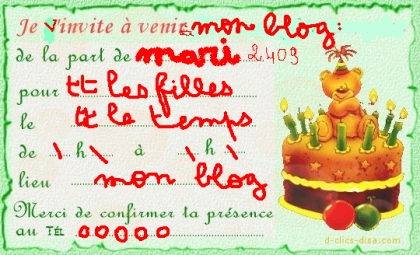 Je t'invite à venir mon blog:
de la part de mari 2409
pour tt les filles
le tt le temps
de 1 h 1 à 1 h 1
lieu mon blog
Merci de confirmer ta présence
au TÉL 00000
d-clics-disa.com